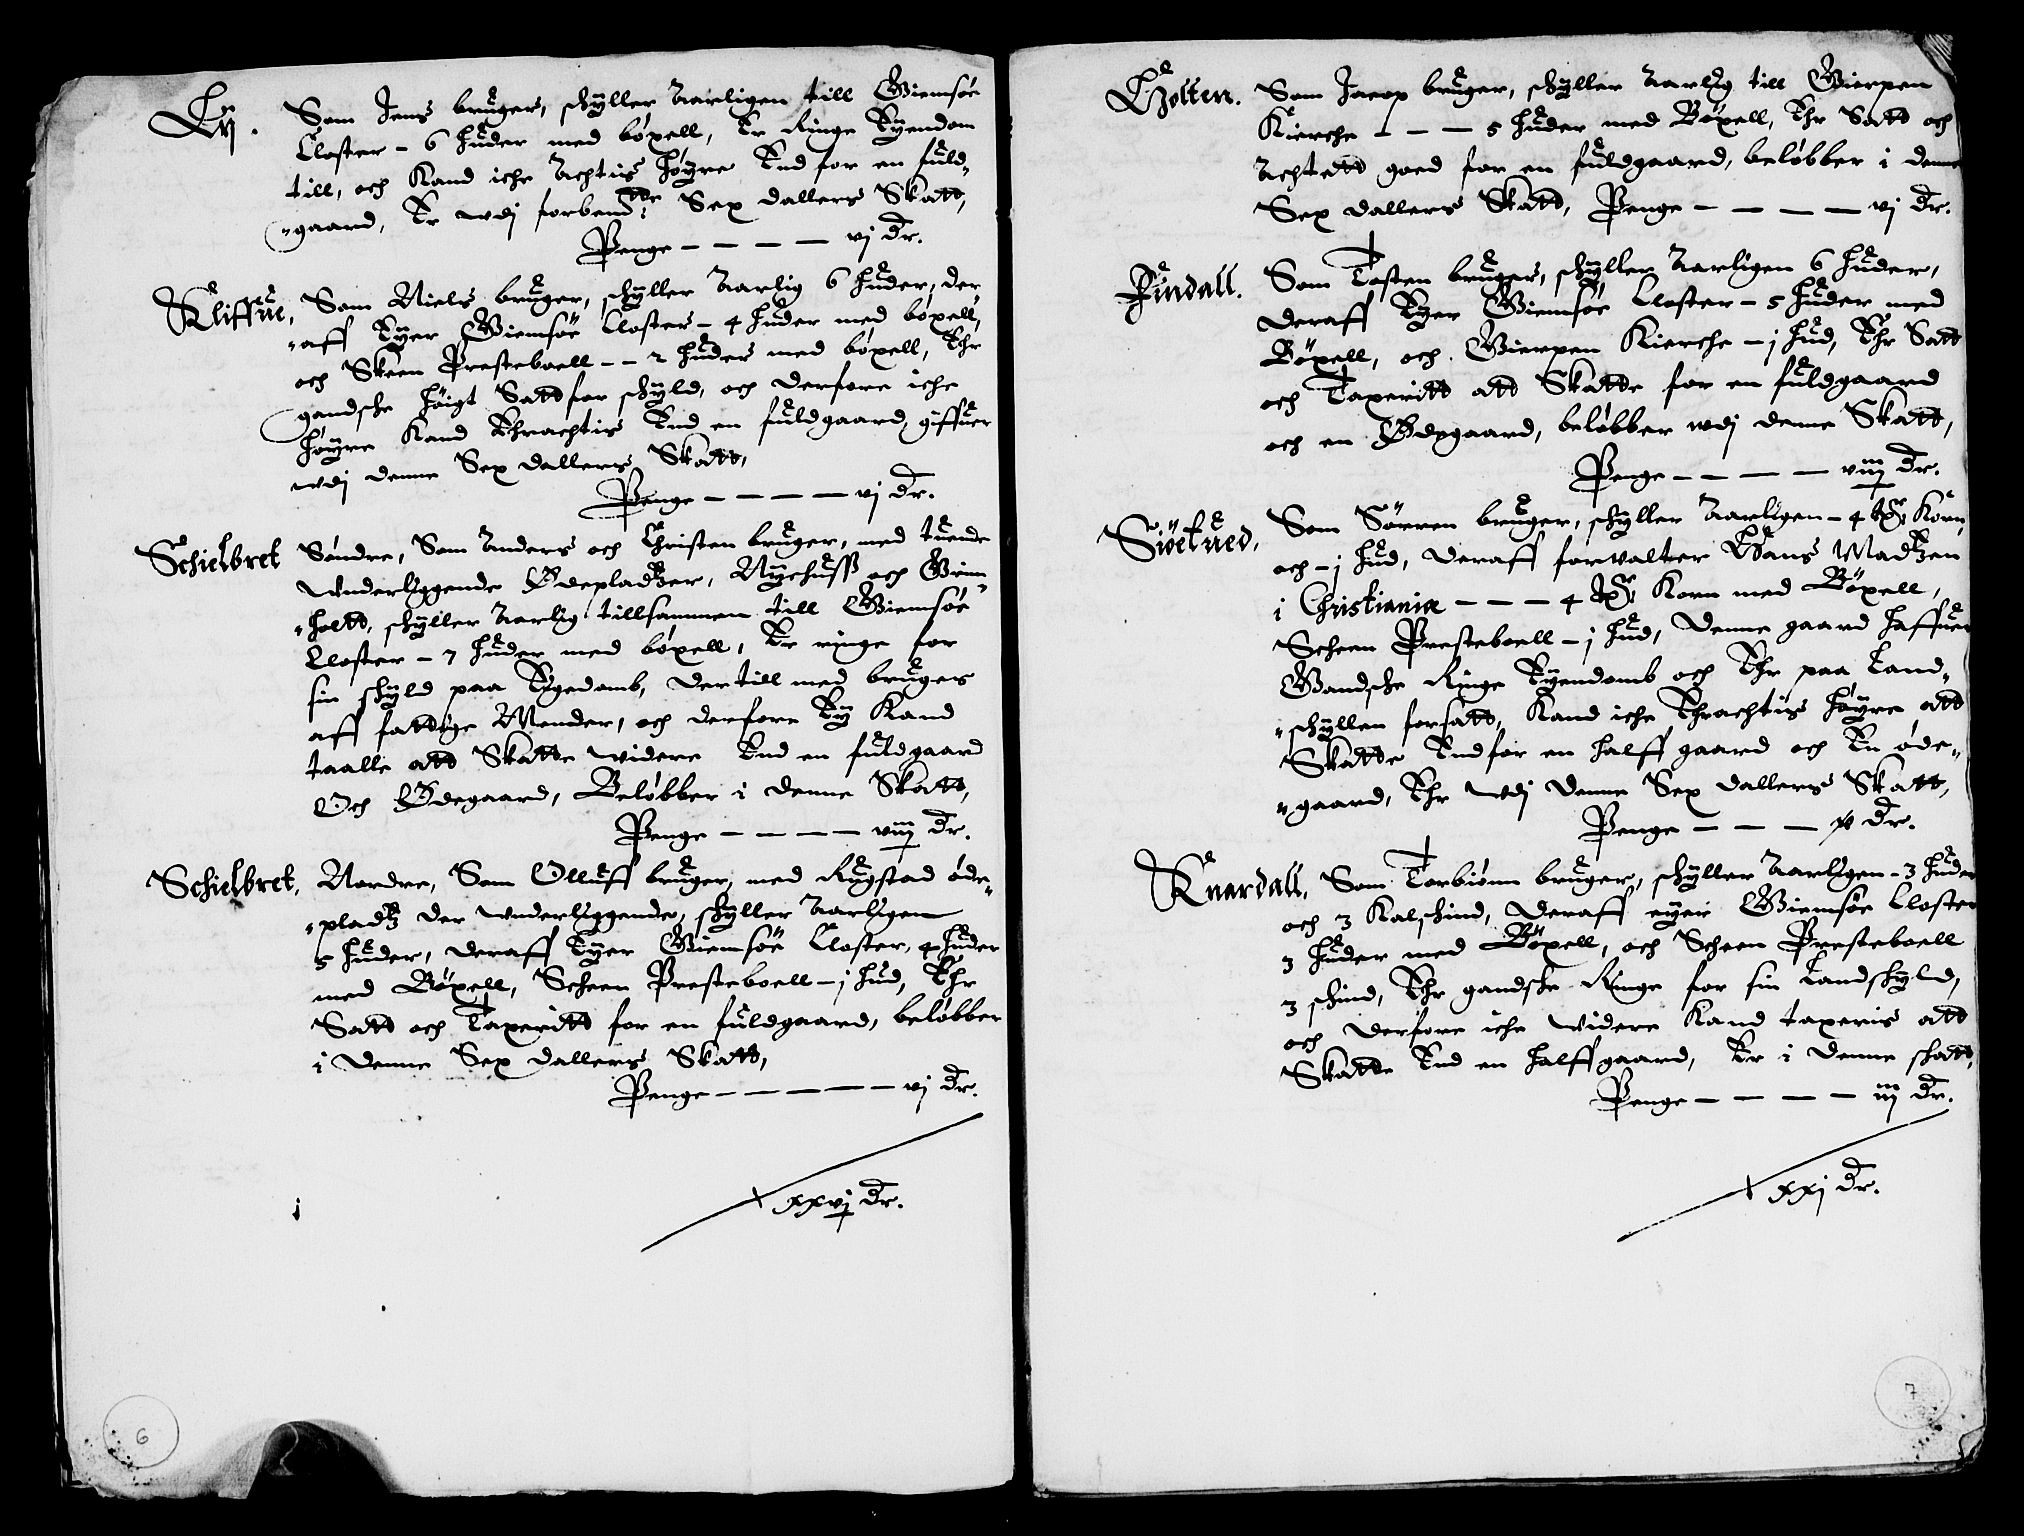 Lij. Som Jens bruger, schyller Aarligen till Giemsøe
Closter - 6 Huder med bøxell, Er Ringe Eyendom
till, och Kand iche Achtis høyre End for en fuld-
gaard, Er wdj forbemte Sex dallers Skatt,
Penge - - - - vj Dr.
Kliffue, Som Niels bruger, schyller Aarlig 6 Huder, der
aff Eyer Giemsøe Closter - 4 huder med bøxell,
och Skeen Presteboell - - 2 huder med bøxell, Ehr
gandsche høigt Satt for schyld, och derfore iche
høyre Kand Ehrachtis End en fuldgaard, giffuer
wdj denne Sex dallers Skatt,
Penge - - - - vj Dr.
Schielbret Søndre, Som Anders och Christen bruger, med tuende
wnderliggende Ødepladtzer, Nyehuss och Grin-
holtt, schyller Aarlig tillsammen till Giemsøe
Closter - 7 huder med bøxell, Er ringe for
sin schyld paa Eigedomb, dertill med bruges
aff fattige Mender, och derfore Ey Kand
taalle att Skatte widere End en fuldgaard
Och Ødegaard, Beløbber i denne Skatt,
Penge - - - - viij Dr.
Schielbret, Nordre, Som Olluff bruger, med Rugstad øde-
pladtz der wnderliggende, schyller Aarligen
5 huder, deraff Eyer Giemsøe Closter, 4 huder
med Bøxell, Scheen Presteboell - j hud, Ehr
Satt och Taxeritt for en fuldgaard, beløbber
i denne Sex dallers Skatt,
Penge - - - - - vj Dr.
xxvj Dr.
6
Holten. Som Jacop bruger, schyller Aarlig till Gierpen
Kierche - - - 5 huder med Bøxell, Ehr Satt och
Achtett goed for en fuldgaard, beløbber i denne
Sex dallers Skatt, Penge - - - - vj Dr.
Findall. Som Tosten bruger, schyller Aarligen 6 huder,
deraff Eyer Giemsøe Closter - 5 huder med
Bøxell, och Gierpen Kierche - j hud, Ehr Satt
och Taxeritt att Skatte for en fuldgaard
och en Ødegaard, beløbber wdj denne Skatt,
Penge - - - - viij Dr.
Siøetued, Som Sørren bruger, schyller Aarligen - 4 Korn,
och - j hud, deraff forwalter Hans Madtzen
i Christiania - - - 4 Korn med Bøxell,
Scheen Presteboell - j hud, denne gaard haffuer
Gandsche Ringe Eyendomb och Ehr paa Land-
schyllen forsatt, Kand iche Ehrachtis høyre att
Skatte End for en halff gaard och En øde-
gaard, Ehr wdj denne Sex dallers Skatt,
Penge - - - Dr.
Knardall, Som Torbiønn bruger, schyller Aarligen - 3 huder
och 3 Kalschind, deraff eyer Giemsøe Closter
3 huder med Bøxell, och Scheen Presteboell
3 schind, Ehr gandsche Ringe for sin Landschyld,
och derfore iche widere Kand taxeris att
Skatte End en halffgaard, Er i denne schatt,
Penge - - - - iij Dr.
xxj Dr.
7